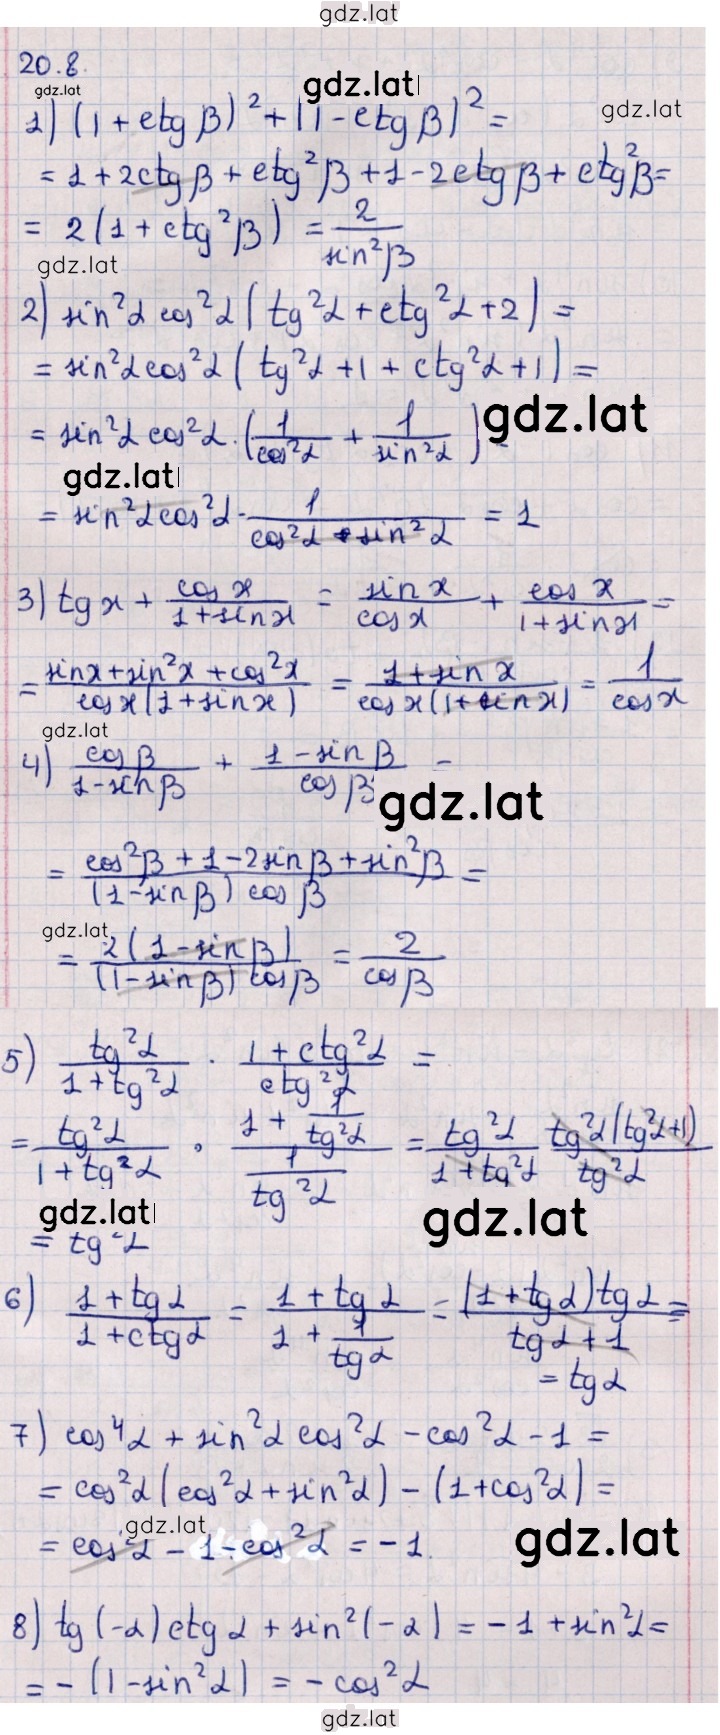 gdz.lat
20.8.
gdz.lat gdz.lat gdz.lat
1) (1 + ctg β)² + (1 - ctg β)² =
= 1 + 2ctg β + ctg²β + 1 - 2ctg β + ctg²β =
= 2(1 + ctg²β) = 2/sin²β
gdz.lat
2) sin²α cos²α (tg²α + ctg²α + 2) =
= sin²α cos²α (tg²α + 1 + ctg²α + 1) =
= sin²α cos²α · (1/cos²α + 1/sin²α) =
gdz.lat
gdz.lat
= sin²α cos²α · 1/(cos²α · sin²α) = 1
3) tg x + cos x/(1 + sin x) = sin x/cos x + cos x/(1 + sin x) =
= (sin x + sin²x + cos²x)/(cos x(1 + sin x)) = (1 + sin x)/(cos x(1 + sin x)) = 1/cos x
gdz.lat
4) cos β/(1 - sin β) + (1 - sin β)/cos β =
gdz.lat
= (cos²β + 1 - 2sin β + sin²β)/((1 - sin β) cos β) =
gdz.lat
= 2(1 - sin β)/((1 - sin β) cos β) = 2/cos β
5) tg²α/(1 + tg²α) · (1 + ctg²α)/ctg²α =
= tg²α/(1 + tg²α) · (1 + 1/tg²α)/(1/tg²α) = tg²α/(1 + tg²α) tg²α(tg²α + 1)/tg²α
gdz.lat gdz.lat
= tg²α
6) (1 + tg α)/(1 + ctg α) = (1 + tg α)/(1 + 1/tg α) = (1 + tg α) tg α/(tg α + 1) =
= tg α
7) cos⁴α + sin²α cos²α - cos²α - 1 =
= cos²α (cos²α + sin²α) - (1 + cos²α) =
gdz.lat gdz.lat
= cos²α - 1 - cos²α = -1.
8) tg (-α) ctg α + sin²(-α) = -1 + sin²α =
= -(1 - sin²α) = -cos²α
gdz.lat